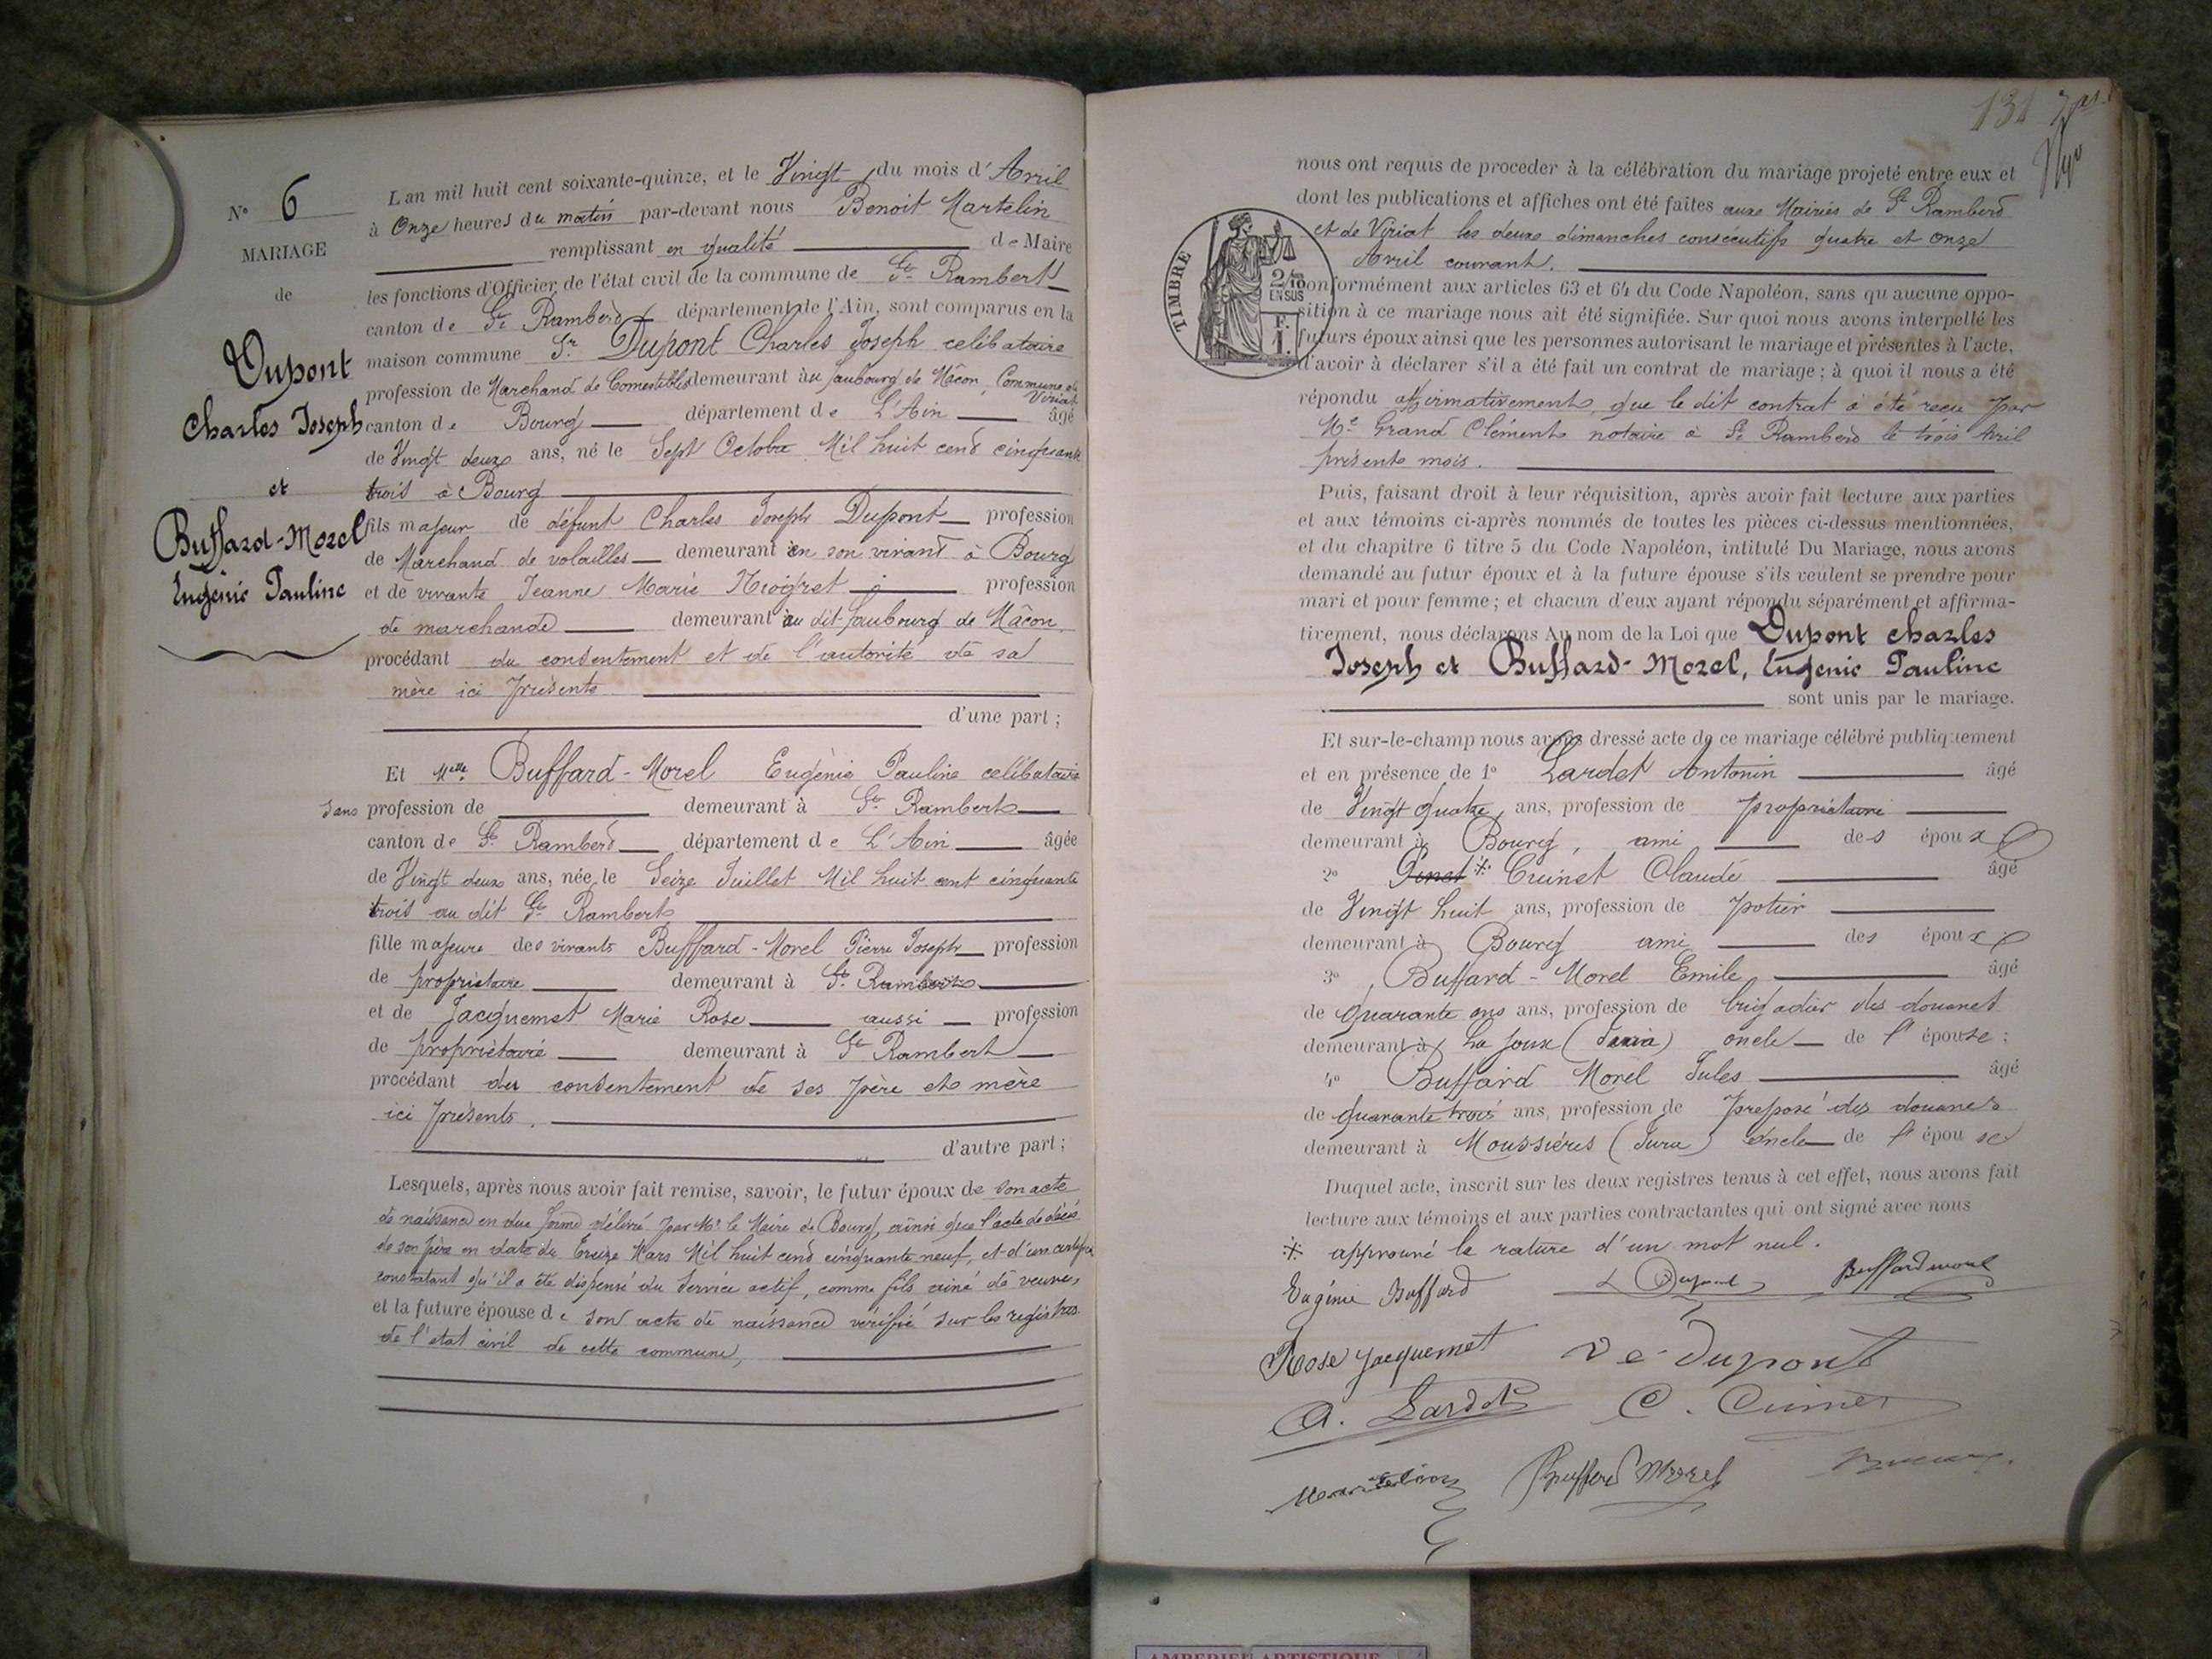 N° 6
MARIAGE
de
Dupont
Charles Joseph
et
Buffard-Morel
Eugénie Pauline
L'an mil huit cent soixante-quinze, et le Vingt du mois d'Avril
à Onze heures du matin par-devant nous Benoit Martelin
remplissant en qualité de Maire
les fonctions d'Officier de l'état civil de la commune de St Rambert
canton de St Rambert département de l'Ain, sont comparus en la
maison commune Sr Dupont Charles Joseph celibataire
profession de Marchand de Comestibles demeurant au faubourg de Mâcon, Commune de Viriat
canton de Bourg département de L'Ain âgé
de Vingt deux ans, né le Sept Octobre Mil huit cent cinquante
trois à Bourg
fils majeur de défunt Charles Joseph Dupont profession
de Marchand de volailles demeurant en son vivant à Bourg
et de vivante Jeanne Marie profession
de marchande demeurant au dit faubourg de Mâcon
procédant du consentement et de l'autorité de sa
mère ici présente
d'une part ;
Et Melle Buffard-Morel Eugènie Pauline celibataire
sans profession de demeurant à St Rambert
canton de St Rambert département de L'Ain âgée
de Vingt deux ans, née le Seize Juillet Mil huit cent cinquante
trois au dit St Rambert
fille majeure des vivants Buffard-Morel Pierre Joseph profession
de propriétaire demeurant à St Rambert
et de Jacquemet Marie Rose aussi profession
de propriétaire demeurant à St Rambert
procédant du consentement de ses père et mère
ici présents.
d'autre part ;
Lesquels, après nous avoir fait remise, savoir, le futur époux de son acte
de naissance en due forme délivré par Mr le Maire de Bourg, ainsi que l'acte de décès
de son père en date du Treize Mars Mil huit cent cinquante neuf, et d'un certificat
constatant qu'il a été dispensé du Service actif, comme fils ainé de veuve,
et la future épouse de son acte de naissance vérifié sur les registres
de l'état civil de cette commune,
131
nous ont requis de proceder à la célébration du mariage projeté entre eux et
dont les publications et affiches ont été faites aux Mairies de St Rambert
et de Viriat les deux dimanches consécutifs quatre et onze
Avril courant.
TIMBRE
2/10 EN SUS
F.
1.
conformément aux articles 63 et 64 du Code Napoléon, sans qu'aucune oppo-
sition à ce mariage nous ait été signifiée. Sur quoi nous avons interpellé les
futurs époux ainsi que les personnes autorisant le mariage et présentes à l'acte,
d'avoir à déclarer s'il a été fait un contrat de mariage ; à quoi il nous a été
répondu affirmativement, que le dit contrat a été reçu par
Me Grand Clément notaire à St Rambert le trois Avril
présent mois.
Puis, faisant droit à leur réquisition, après avoir fait lecture aux parties
et aux témoins ci-après nommés de toutes les pièces ci-dessus mentionnées,
et du chapitre 6 titre 5 du Code Napoléon, intitulé Du Mariage, nous avons
demandé au futur époux et à la future épouse s'ils veulent se prendre pour
mari et pour femme ; et chacun d'eux ayant répondu séparément et affirma-
tivement, nous déclarons Au nom de la Loi que Dupont Charles
Joseph et Buffard-Morel, Eugenie Pauline
sont unis par le mariage.
Et sur-le-champ nous avons dressé acte de ce mariage célébré publiquement
et en présence de 1° Lardet Antonin âgé
de Vingt quatre ans, profession de propriétaire
demeurant à Bourg, ami des époux
2° Cuinet Claude âgé
de Vingt huit ans, profession de potier
demeurant à Bourg ami des époux
3° Buffard-Morel Emile âgé
de quarante ans ans, profession de brigadier des douanes
demeurant à La Joux (Jura) oncle de l'épouse ;
4° Buffard Morel Jules âgé
de quarante trois ans, profession de preposé des douanes
demeurant à Moussières (Jura) oncle de l'épouse
Duquel acte, inscrit sur les deux registres tenus à cet effet, nous avons fait
lecture aux témoins et aux parties contractantes qui ont signé avec nous
approuvé la rature d'un mot nul.
Eugénie Buffard Dupont Buffardmorel
Rose Jacquemet Ve Dupont
A. Lardet C. Cuinet
Martelin Buffard Morel
AMBERIEU ARTISTIQUE